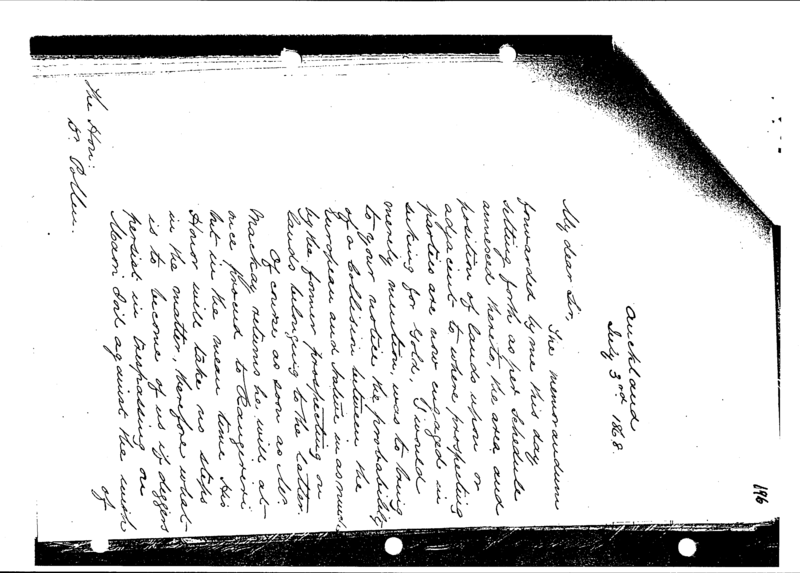 196
Auckland
July 3rd 1868.
My dear Sir,
The memorandum
forwarded by me this day
setting forth as per Schedule
annexed thereto, the area and
position of lands upon or
adjacent to where prospecting
parties are now engaged in
seeking for Gold, I would
merely mention, was to bring
to your notice the probability
of a Collision between the
European and Native in as much
by the former prospecting on
lands belonging to the latter.
Of course as soon as Mr.
Mackay returns he will at-
once proceed to
but in the mean time His
Honor will take no steps
in the matter, therefore what
is to become of us if diggers
persist in trespassing on
Maori Soil against the wish
of
The Hon:
Dr. Pollen.